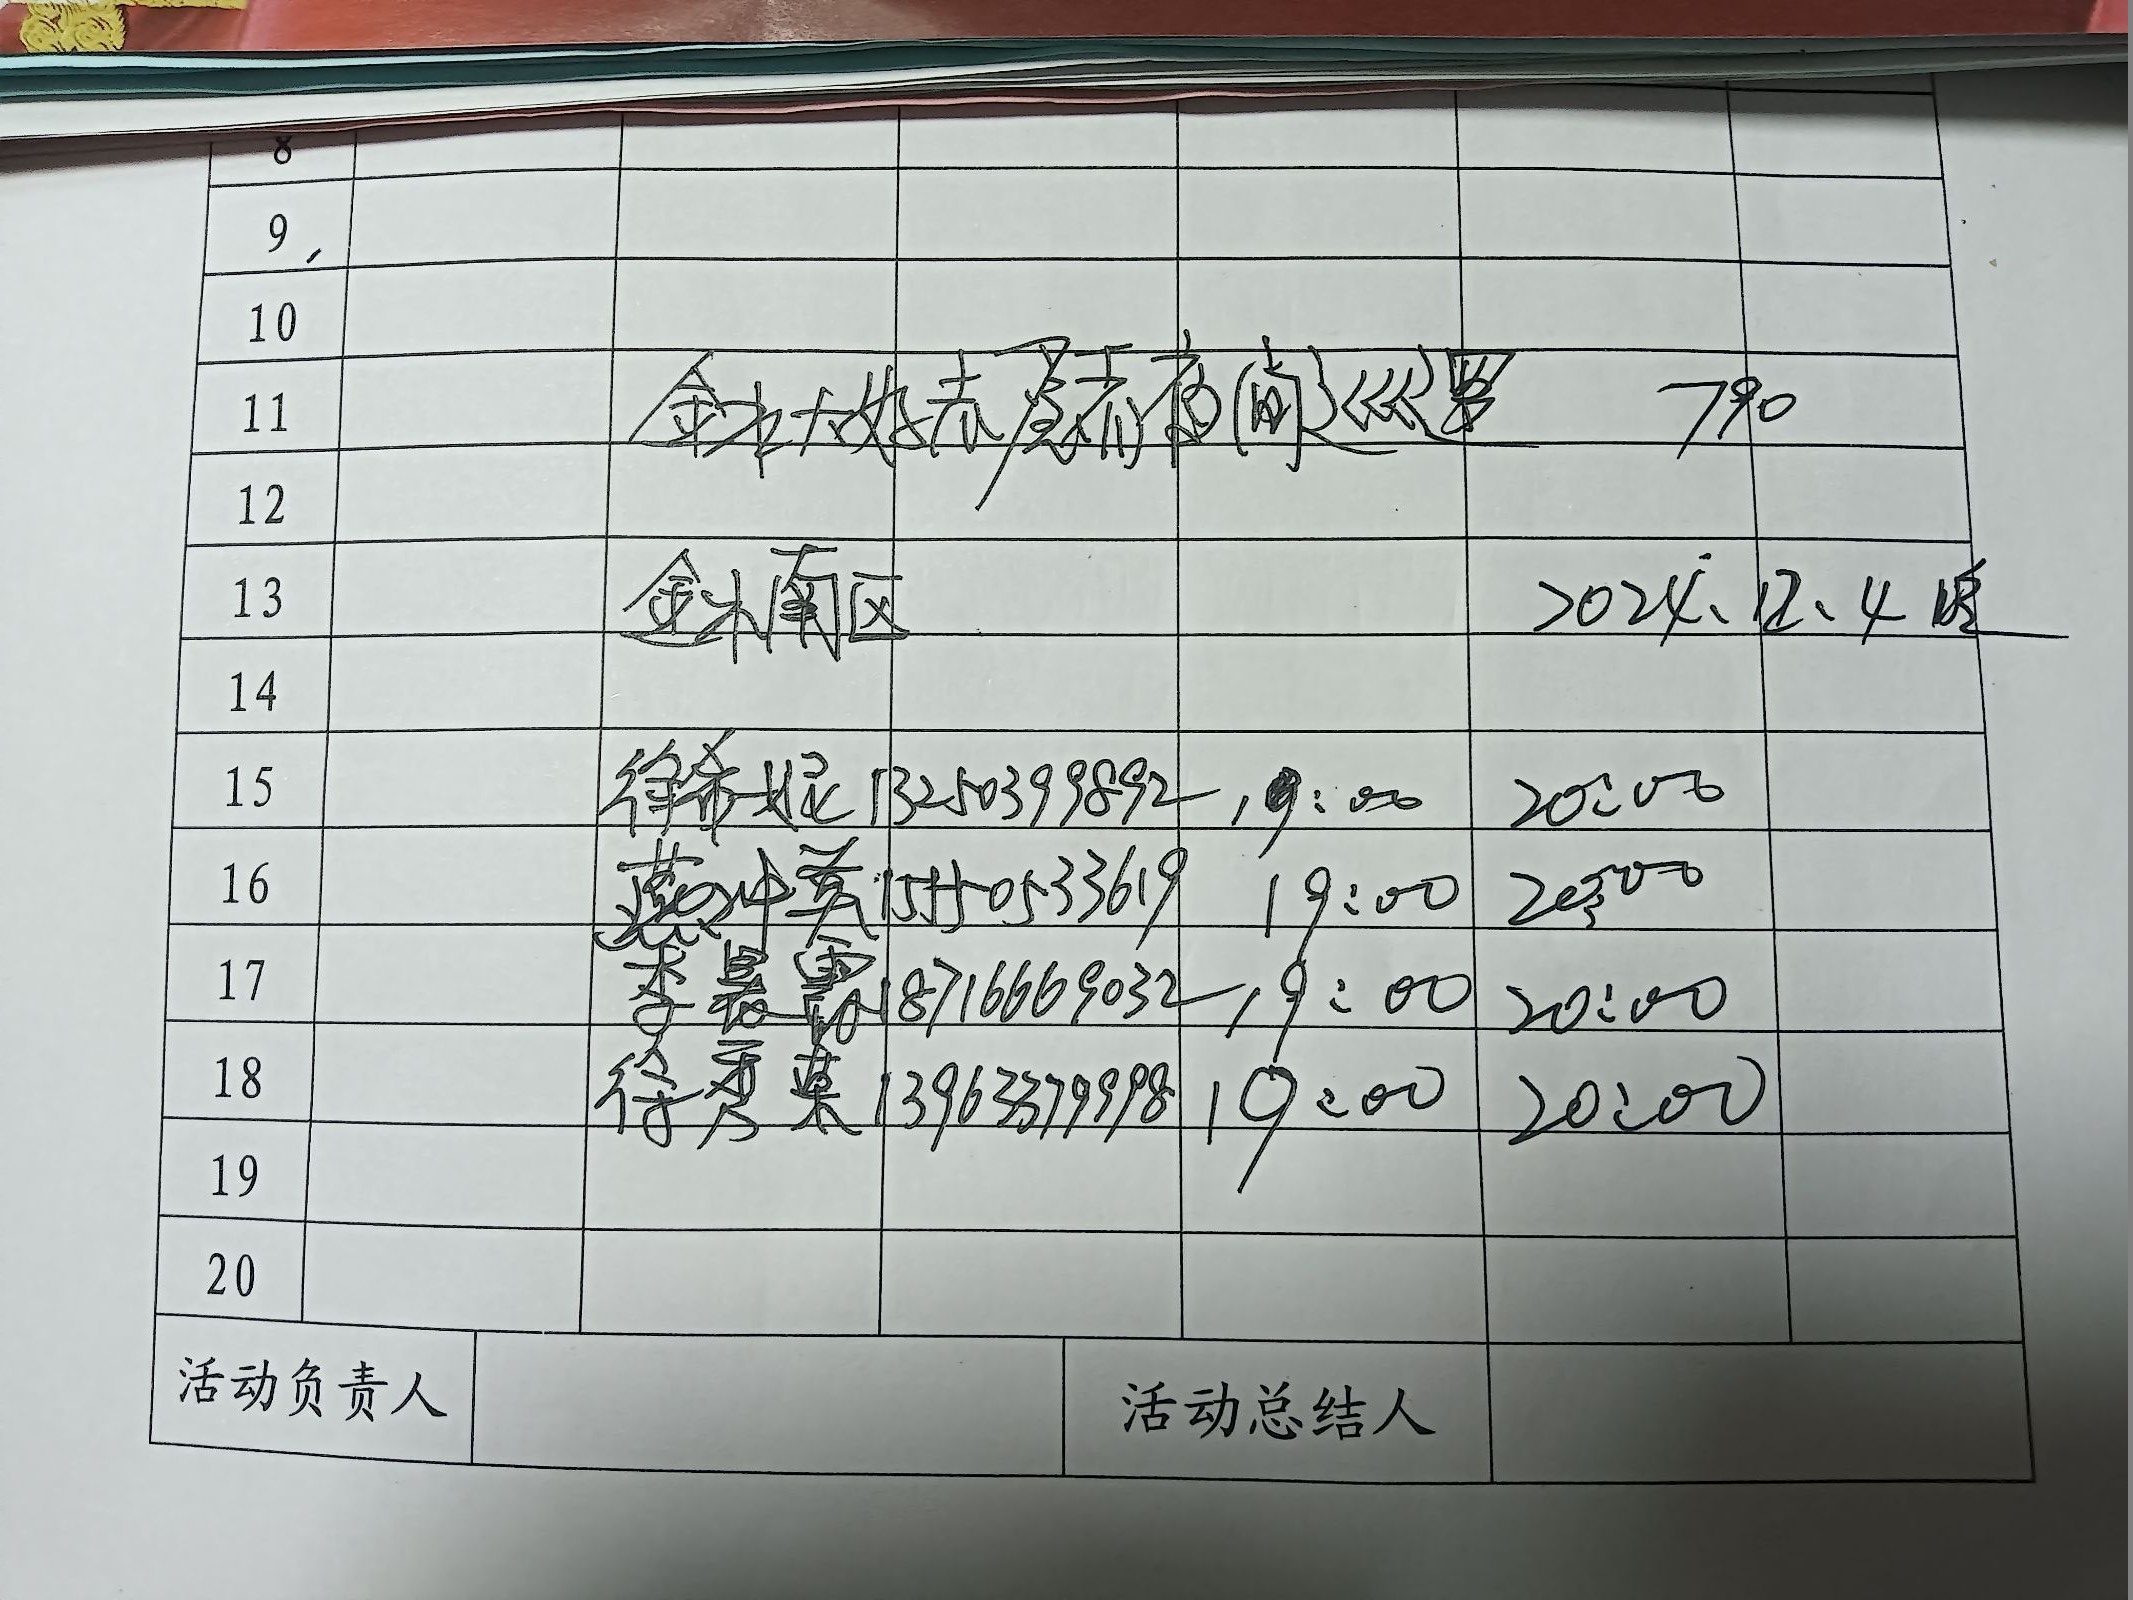 8
9
10
11 金水大好 夜间巡逻 790
12
13 金水南区 2024.12.4
14
15 徐希妮 13250399892 19:00 20:00
16 15550533619 19:00 20:00
17 李 18716669032 19:00 20:00
18 徐秀 13963379998 19:00 20:00
19
20
活动负责人 活动总结人